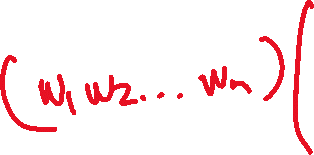 (w₁ w₂ ... wₙ) (